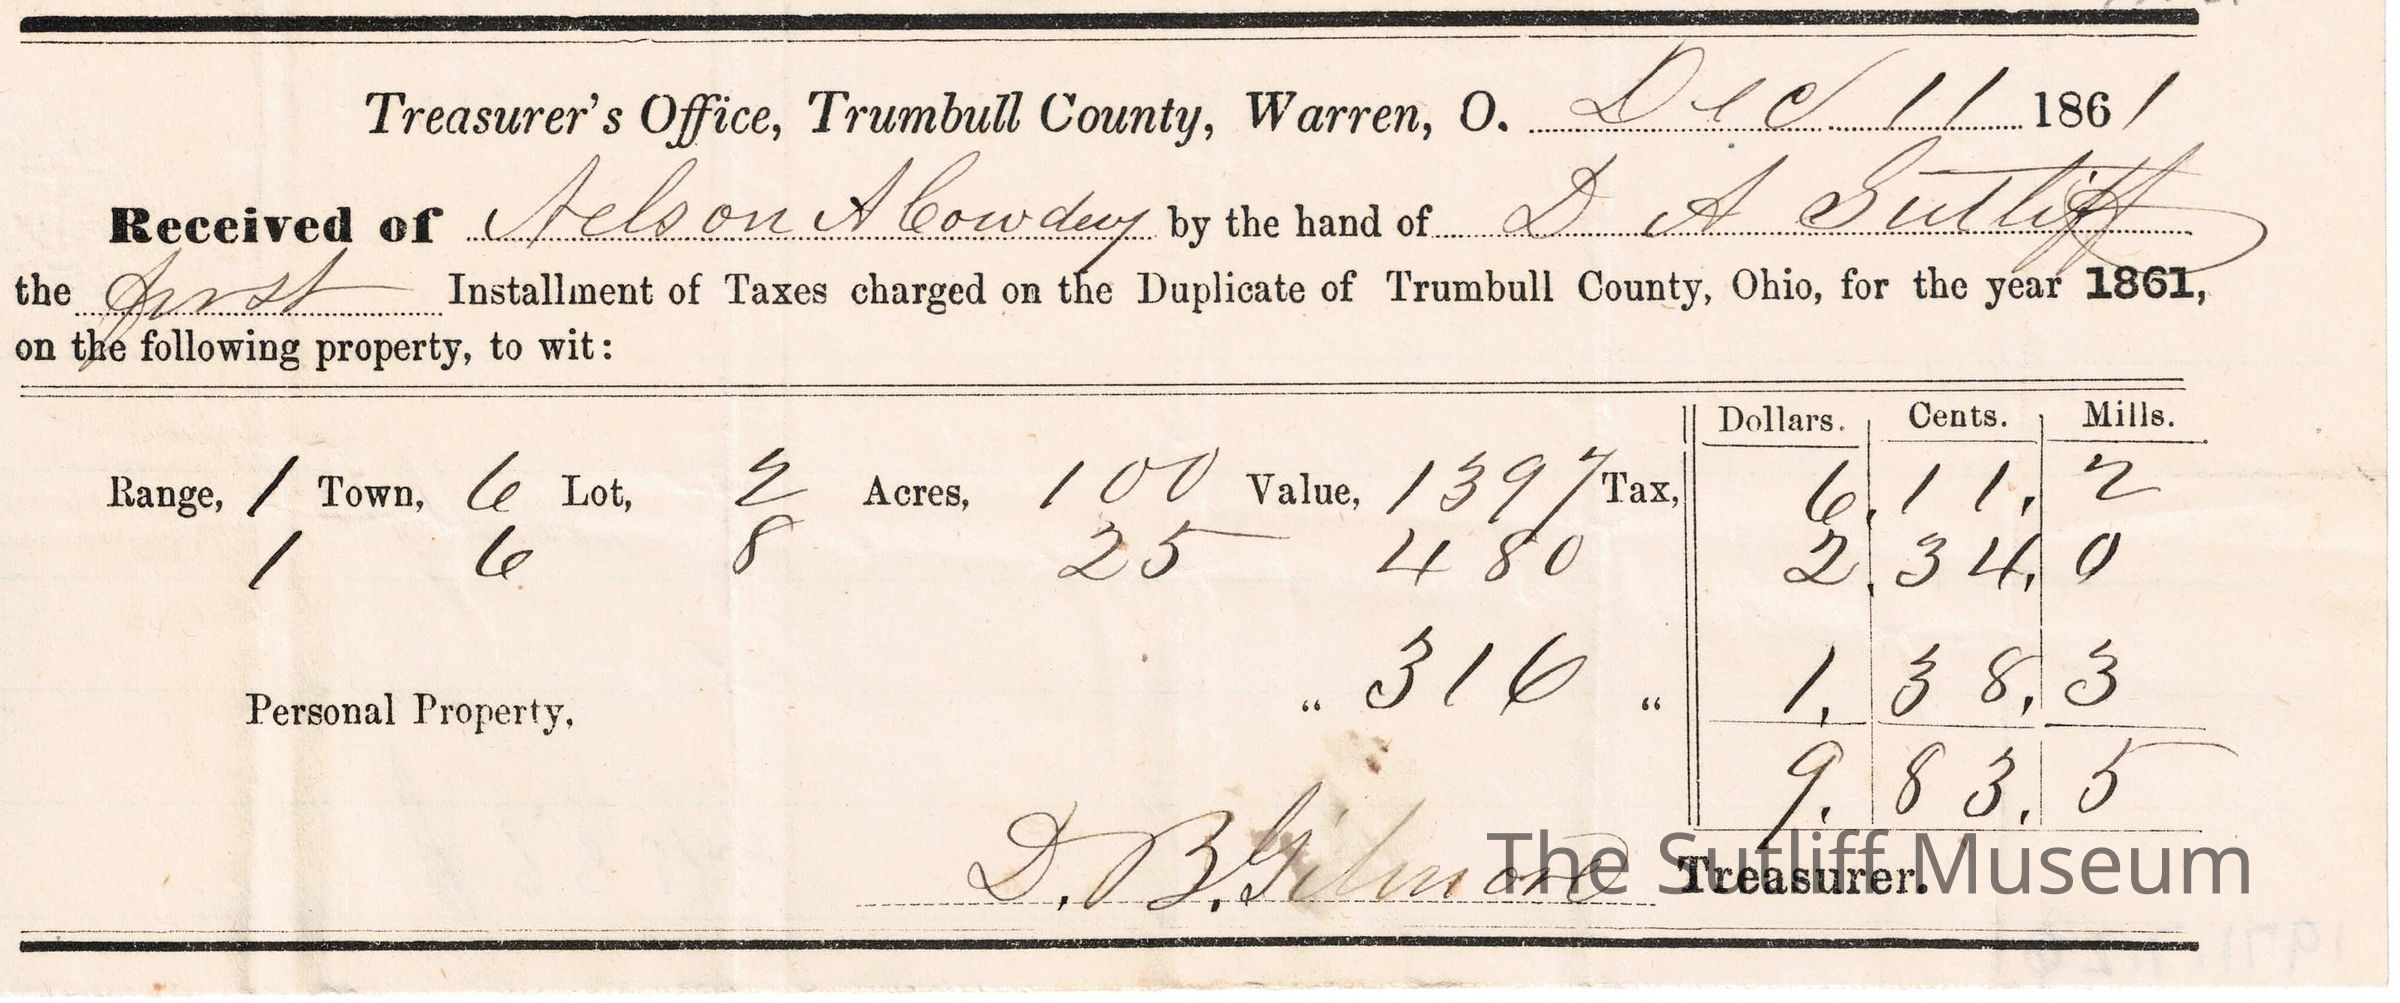 Treasurer's Office, Trumbull County, Warren, O. Dec 11 1861
Received of Nelson A Cowdery by the hand of D A Sutliff
the first Installment of Taxes charged on the Duplicate of Trumbull County, Ohio, for the year 1861,
on the following property, to wit:
Dollars. Cents. Mills.
Range, 1 Town, 6 Lot, 2 Acres, 100 Value, 1397 Tax, 6. 11. 2
1 6 8 25 480 2. 34. 0
Personal Property, " 316 " 1. 38. 3
9. 83. 5
D. B. Gilmore Treasurer.
The Sutliff Museum